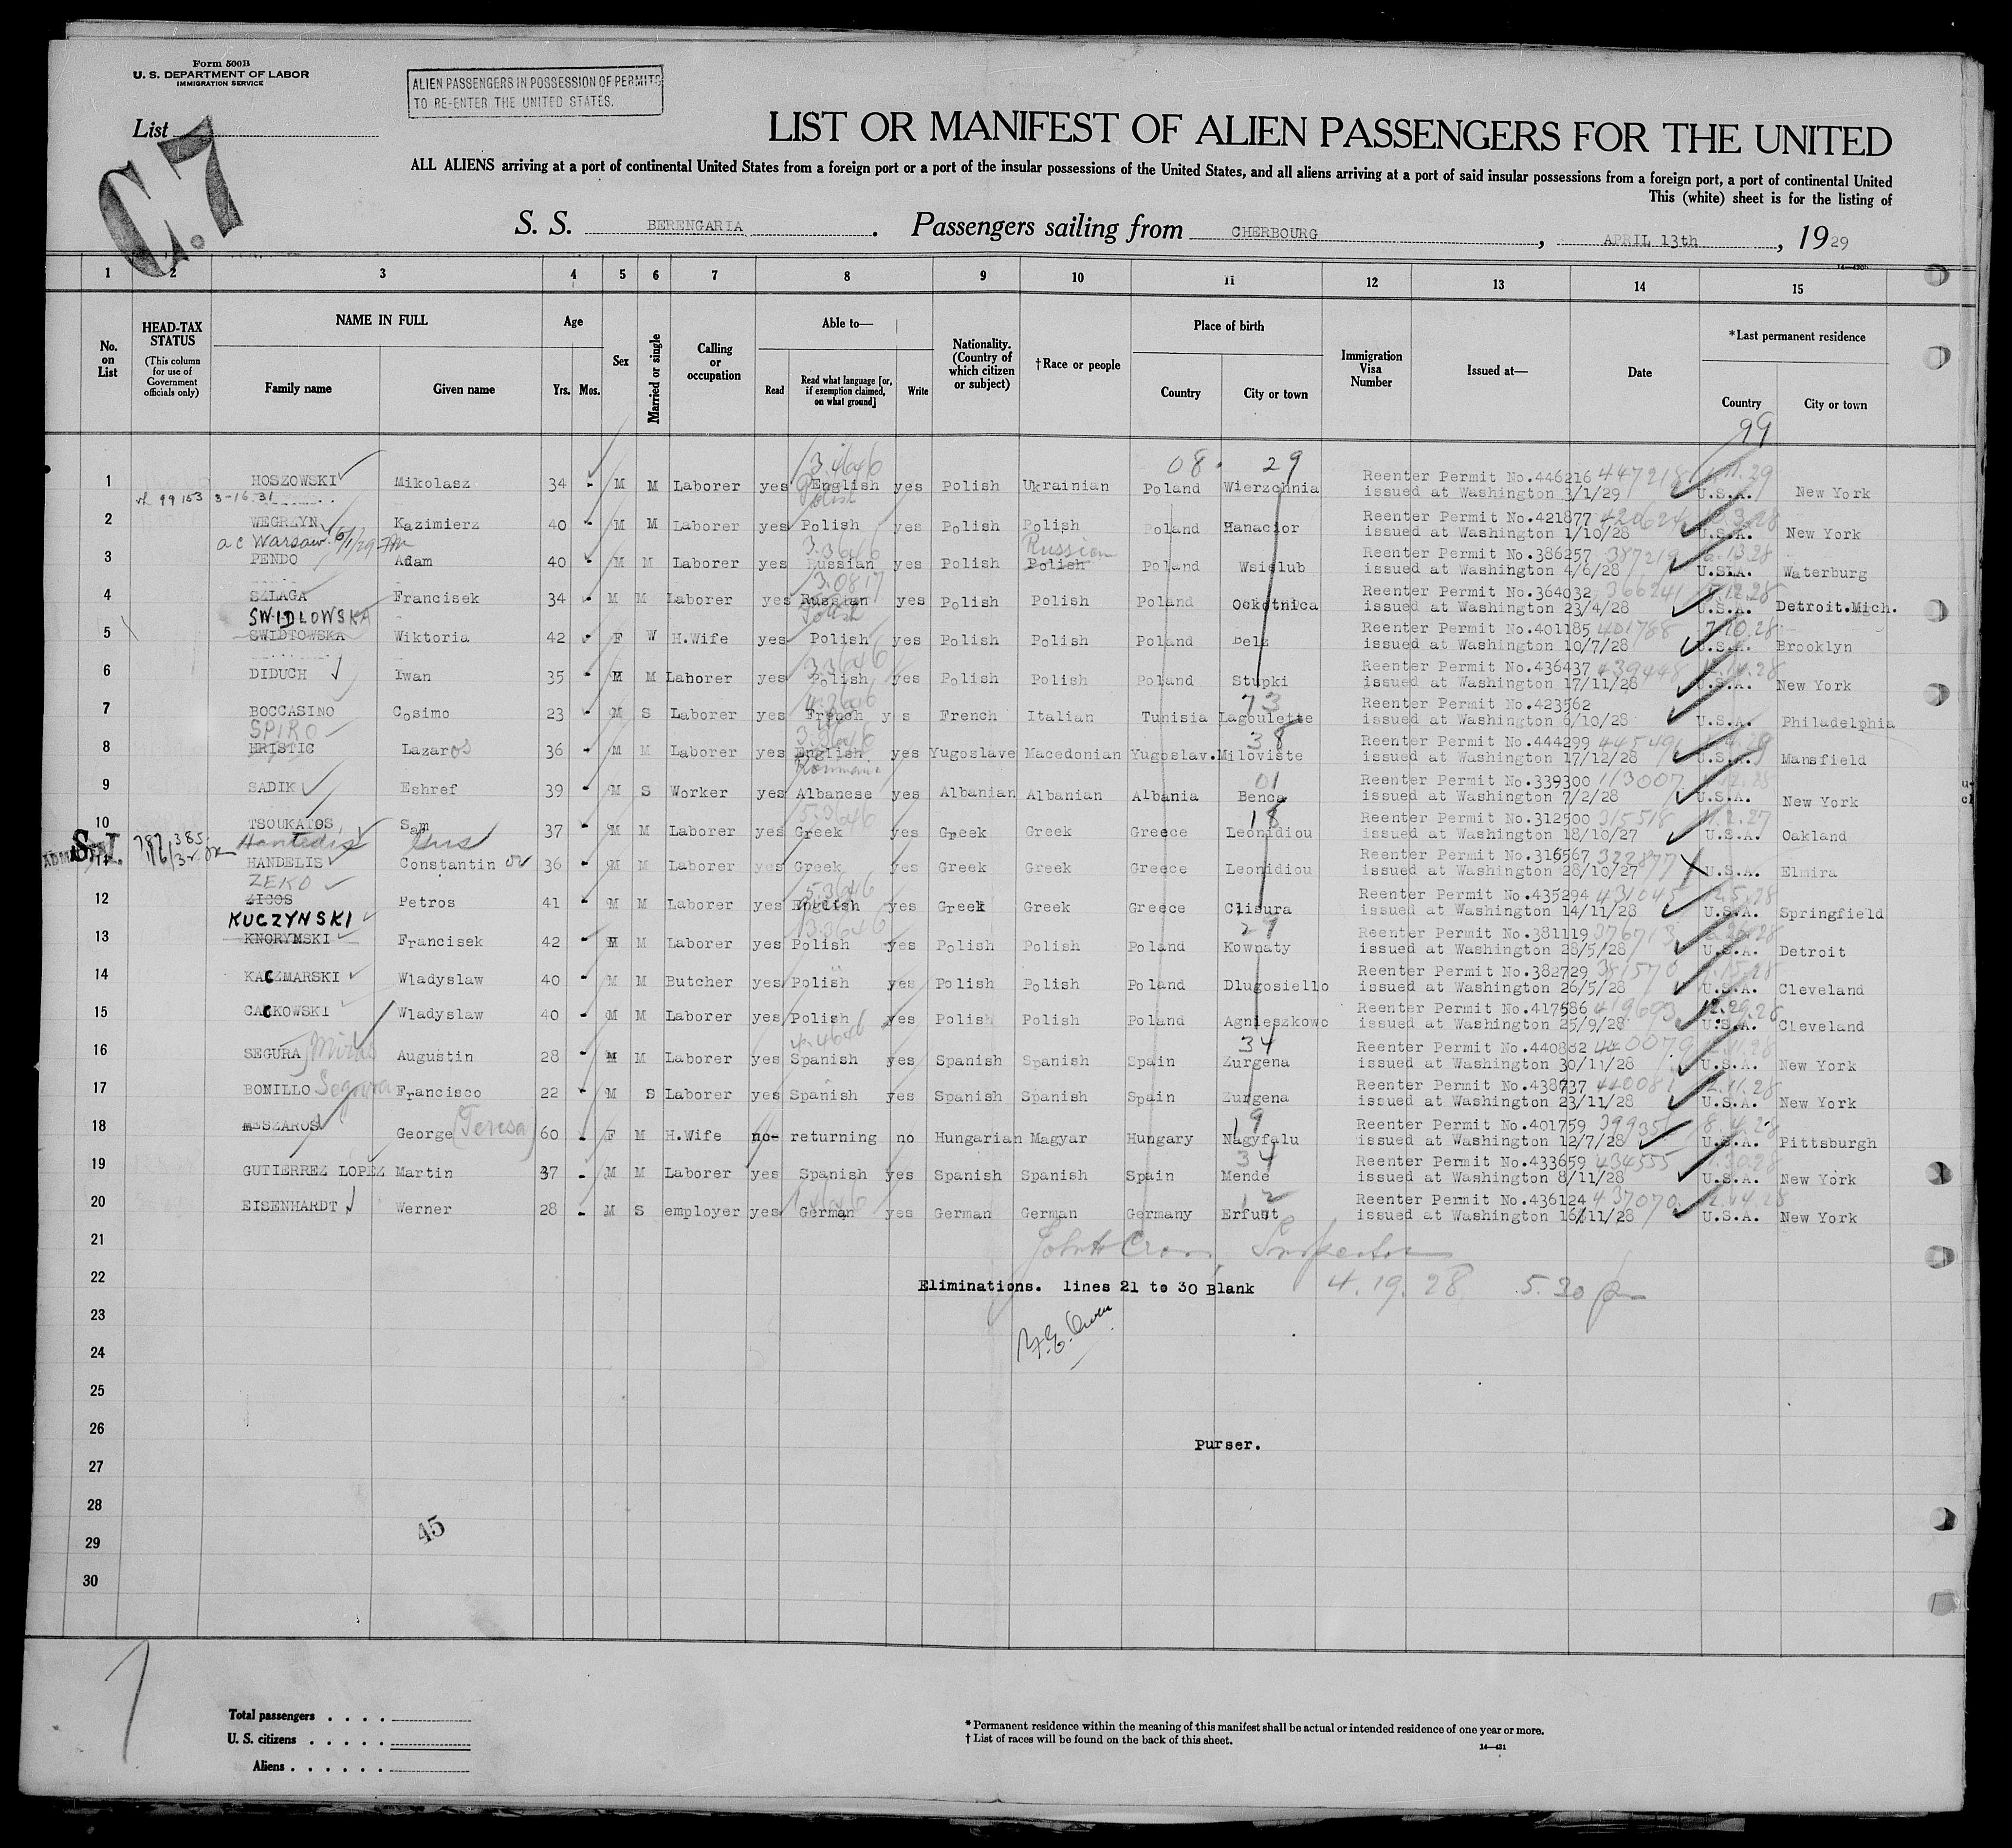 Form 500B
U. S. DEPARTMENT OF LABOR
IMMIGRATION SERVICE
ALIEN PASSENGERS IN POSSESSION OF PERMITS
TO RE-ENTER THE UNITED STATES.
List
C.7
LIST OR MANIFEST OF ALIEN PASSENGERS FOR THE UNITED
ALL ALIENS arriving at a port of continental United States from a foreign port or a port of the insular possessions of the United States, and all aliens arriving at a port of said insular possessions from a foreign port, a port of continental United
This (white) sheet is for the listing of
S. S. BERENGARIA. Passengers sailing from CHERBOURG, APRIL 13th, 1929
1 2 3 4 5 6 7 8 9 10 11 12 13 14 15
No. on List
HEAD-TAX STATUS (This column for use of Government officials only)
NAME IN FULL Family name Given name
Age Yrs. Mos.
Sex
Married or single
Calling or occupation
Able to— Read Read what language [or, if exemption claimed, on what ground] Write
Nationality. (Country of which citizen or subject)
†Race or people
Place of birth Country City or town
Immigration Visa Number
Issued at—
Date
*Last permanent residence Country City or town
99
3.4646 08 29
1 HOSZOWSKI Mikolasz 34 - M M Laborer yes English yes Polish Ukrainian Poland Wierzchnia Reenter Permit No.446216 447218 issued at Washington 3/1/29 U.S.A. New York
Polish
99153 3-16.31
2 WEGRZYN Kazimierz 40 - M M Laborer yes Polish yes Polish Polish Poland Hanacior Reenter Permit No.421877 420624 issued at Washington 1/10/28 U.S.A. New York
a c Warsaw. 6/1/29
Russian
3 PENDO Adam 40 - M M Laborer yes Russian yes Polish Polish Poland Wsielub Reenter Permit No.386257 387219 issued at Washington 4/6/28 U.S.A. Waterburg
4 SZLAGA Francisek 34 - M M Laborer yes Russian yes Polish Polish Poland Ockotnica Reenter Permit No.364032 366241 issued at Washington 23/4/28 U.S.A. Detroit.Mich.
SWIDLOWSKA Polish
5 SWIDTOWSKA Wiktoria 42 - F W H.Wife yes Polish yes Polish Polish Poland Belz Reenter Permit No.401185 401788 issued at Washington 10/7/28 U.S.A. Brooklyn
6 DIDUCH Iwan 35 - M M Laborer yes Polish yes Polish Polish Poland Stupki Reenter Permit No.436437 439448 issued at Washington 17/11/28 U.S.A. New York
73
7 BOCCASINO Cosimo 23 - M S Laborer yes French yes French Italian Tunisia Lagoulette Reenter Permit No.423562 issued at Washington 6/10/28 U.S.A. Philadelphia
SPIRO 38
8 HRISTIC Lazaros 36 - M M Laborer yes English yes Yugoslave Macedonian Yugoslav. Miloviste Reenter Permit No.444299 445491 issued at Washington 17/12/28 U.S.A. Mansfield
01
9 SADIK Eshref 39 - M S Worker yes Albanese yes Albanian Albanian Albania Benca Reenter Permit No.339300 113007 issued at Washington 7/2/28 U.S.A. New York
18
10 TSOUKATOS, Sam 37 - M M Laborer yes Greek yes Greek Greek Greece Leonidiou Reenter Permit No.312500 315518 issued at Washington 18/10/27 U.S.A. Oakland
S.I. Hantedis Gus
11 HANDELIS Constantin or 36 - M M Laborer yes Greek yes Greek Greek Greece Leonidiou Reenter Permit No.316567 322877 issued at Washington 28/10/27 U.S.A. Elmira
ZEKO
12 ZICOS Petros 41 - M M Laborer yes English yes Greek Greek Greece Clisura Reenter Permit No.435294 431045 issued at Washington 14/11/28 U.S.A. Springfield
KUCZYNSKI 29
13 KNORYMSKI Francisek 42 - M M Laborer yes Polish yes Polish Polish Poland Kownaty Reenter Permit No.381119 376713 issued at Washington 28/5/28 U.S.A. Detroit
14 KACZMARSKI Wladyslaw 40 - M M Butcher yes Polish yes Polish Polish Poland Dlugosiello Reenter Permit No.382729 381570 issued at Washington 26/5/28 U.S.A. Cleveland
15 CACKOWSKI Wladyslaw 40 - M M Laborer yes Polish yes Polish Polish Poland Agnieszkowo Reenter Permit No.417586 419693 issued at Washington 25/9/28 U.S.A. Cleveland
34
16 SEGURA Augustin 28 - M M Laborer yes Spanish yes Spanish Spanish Spain Zurgena Reenter Permit No.440882 440079 issued at Washington 30/11/28 U.S.A. New York
17 BONILLO Segura Francisco 22 - M S Laborer yes Spanish yes Spanish Spanish Spain Zurgena Reenter Permit No.438737 440081 issued at Washington 23/11/28 U.S.A. New York
19
18 MESZAROS George (Teresa) 60 - F M H.Wife no- returning no Hungarian Magyar Hungary Nagyfalu Reenter Permit No.401759 399351 issued at Washington 12/7/28 U.S.A. Pittsburgh
34
19 GUTIERREZ LOPEZ Martin 37 - M M Laborer yes Spanish yes Spanish Spanish Spain Mende Reenter Permit No.433659 434555 issued at Washington 8/11/28 U.S.A. New York
12
20 EISENHARDT Werner 28 - M S employer yes German yes German German Germany Erfust Reenter Permit No.436124 437070 issued at Washington 16/11/28 U.S.A. New York
21 Inspector
22 Eliminations. lines 21 to 30 Blank 4.19.28 5.30 p
23
24
25
26 Purser.
27
28
45
29
30
Total passengers . . . .
U. S. citizens . . . . .
Aliens . . . . . .
* Permanent residence within the meaning of this manifest shall be actual or intended residence of one year or more.
† List of races will be found on the back of this sheet.
14—431